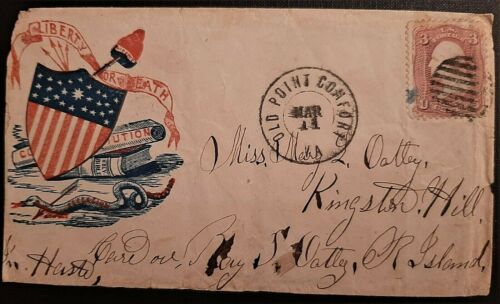 LIBERTY OR DEATH
CONSTITUTION
OLD POINT COMFORT
MAR
11
VA
3 3
U
Miss. Mary L. Oatley.
Kingston. Hill.
Care of Ray S. Oatley, R. Island.
In Haste,